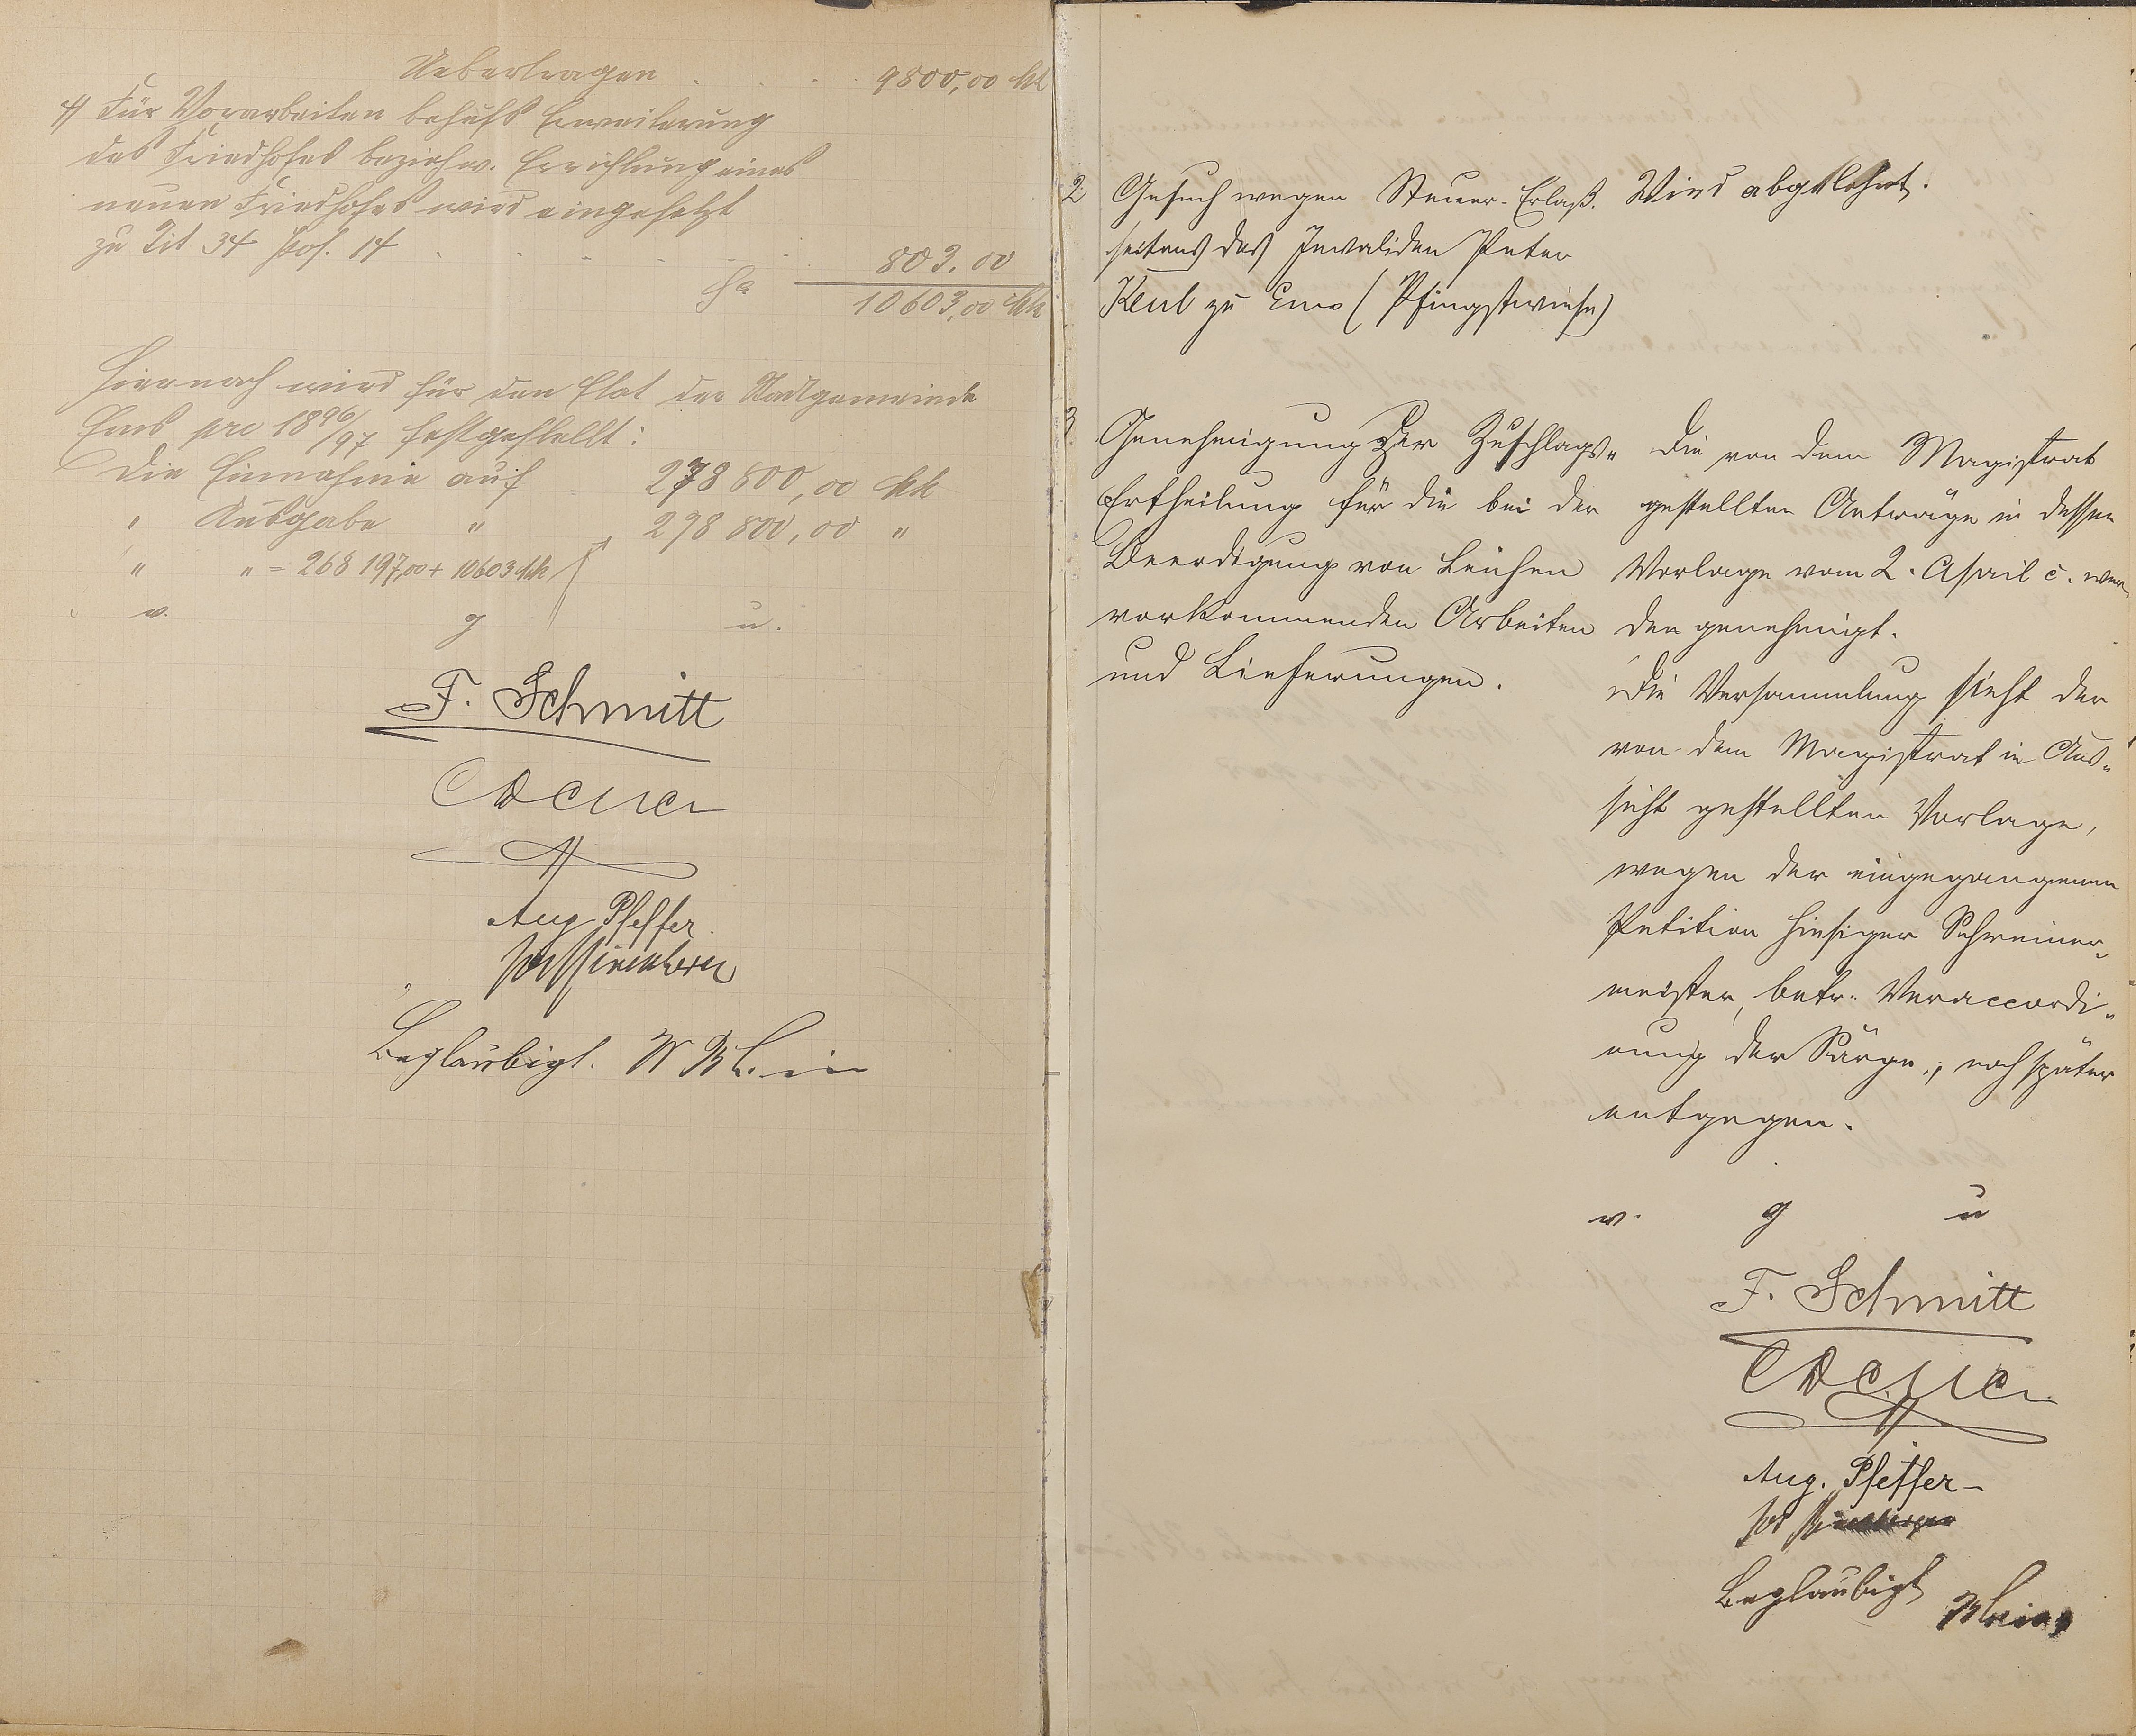 Uebertragen . . . 9800,00 Mk
4) Für Vorarbeiten behufs Erweiterung
des Friedhofes beziehw. Errichtung eines
neuen Friedhofes wird eingesetzt
zu Tit 34 pos. 14 . . . . . 803.00
Sa 10603,00 Mk
Hiernach wird für den Etat der Stadtgemeinde
Ems pro 1896/97 festgestellt:
die Einnahme auf 278 800,00 Mk
" Ausgabe " 278 800,00 "
" " = 268 197,00 + 10603 Mk
v. g u.
F. Schmitt
Aug Pfeffer
Beglaubigt.
2 Gesuch wegen Steuer-Erlaß
seitens des Invaliden Peter
Keul zu Ems (Pfingstwiese)
Wird abgelehnt.
3 Genehmigung der Zuschlags-
Ertheilung für die bei der
Beerdigung von Leichen
vorkommenden Arbeiten
und Lieferungen.
Die von dem Magistrat
gestellten Anträge in dessen
Vorlage vom 2. April c. wer-
den genehmigt.
Die Versammlung sieht der
von dem Magistrat in Aus-
sicht gestellten Vorlage,
wegen der eingegangenen
Petition hiesiger Schreiner-
meister, betr. Veraccordi-
rung der Särge, noch später
entgegen.
v. g u
F. Schmitt
Aug. Pfeffer
Beglaubigt
Klein